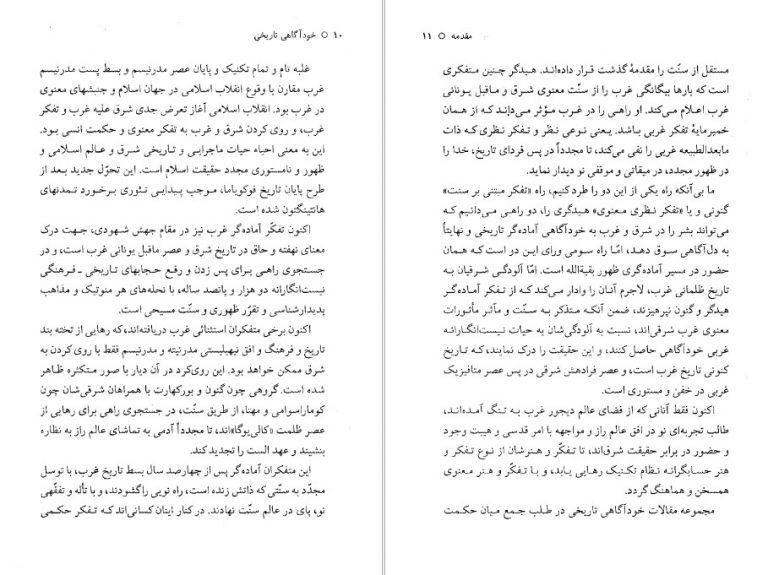 ۱۰ ○ خودآگاهی تاریخی
غلبه تام و تمام تکنیک و پایان عصر مدرنیسم و بسط پست مدرنیسم
غرب مقارن با وقوع انقلاب اسلامی در جهان اسلام و جنبشهای معنوی
در غرب بود. انقلاب اسلامی آغاز تعرض جدی شرق علیه غرب و تفکر
غرب، و روی کردن شرق و غرب به تفکر معنوی و حکمت انسی بود.
این به معنی احیاء حیات ماجرایی و تاریخی شرق و عالم اسلامی و
ظهور و نامستوری مجدد حقیقت اسلام است. این تحوّل جدید بعد از
طرح پایان تاریخ فوکویاما، موجب پیدایی تئوری برخورد تمدنهای
هانتینگتون شده است.
اکنون تفکّر آماده‌گر غرب نیز در مقام جهش شهودی، جهت درک
معنای نهفته و حاق در تاریخ شرق و عصر ماقبل یونانی غرب است، و در
جستجوی راهی برای پس زدن و رفع حجابهای تاریخی ـ فرهنگی
نیست‌انگارانه دو هزار و پانصد ساله، با نحله‌های هر منوتیک و مذاهب
پدیدارشناسی و تقرّر ظهوری و سنّت مسیحی است.
اکنون برخی متفکران استثنائی غرب دریافته‌اند، که رهایی از تخته بند
تاریخ و فرهنگ و افق نیهیلیستی مدرنیته و مدرنیسم فقط با روی کردن به
شرق ممکن خواهد بود. این روی‌کرد در آن دیار با صور متکثره ظاهر
شده است. گروهی چون گنون و بورکهارت با همراهان شرقی‌شان چون
کوماراسوامی و مهنا، از طریق سنّت، در جستجوی راهی برای رهایی از
عصر ظلمت «کالی‌یوگا»اند، تا مجدداً آدمی به تماشای عالم راز به نظاره
بنشیند و عهد الست را تجدید کند.
این متفکران آماده‌گر پس از چهارصد سال بسط تاریخ غرب، با توسل
مجدّد به سنّتی که ذاتش زنده است، راه نویی را گشودند، و با تأله و تفقّهی
نو، پای در عالم سنّت نهادند. در کنار اینان کسانی‌اند که تفکر حکمی
مقدمه ○ ۱۱
مستقل از سنّت را مقدمهٔ گذشت قرار داده‌اند. هیدگر چنین متفکری
است که بارها بیگانگی غرب را از سنّت معنوی شرق و ماقبل یونانی
غرب اعلام می‌کند. او راهی را در غرب مؤثر می‌داند که از همان
خمیرمایهٔ تفکر غربی باشد. یعنی نوعی نظر و تفکر نظری که ذات
مابعدالطبیعه غربی را نفی می‌کند، تا مجدداً در پس فردای تاریخ، خدا را
در ظهور مجدد، در میقاتی و موقفی نو دیدار نماید.
ما بی‌آنکه راه یکی از این دو را طرد کنیم، راه «تفکر مبتنی بر سنت»
گنونی و یا «تفکر نظری معنوی» هیدگری را، دو راهی می‌دانیم که
می‌تواند بشر را در شرق و غرب به خودآگاهی آماده‌گر تاریخی و نهایتاً
به دل‌آگاهی سوق دهد، امّا راه سومی ورای این دو است که همان
حضور در مسیر آماده‌گری ظهور بقیةالله است. امّا آلودگی شرقیان به
تاریخ ظلمانی غرب، لاجرم آنان را وادار می‌کند که از تفکر آماده‌گر
هیدگر و گنون نپرهیزند، ضمن آنکه متذکر به سنّت و مآثر مأثورات
معنوی غرب شرقی‌اند، نسبت به آلودگی‌شان به حیات نیست‌انگارانه
غربی خودآگاهی حاصل کنند، و این حقیقت را درک نمایند، که تاریخ
کنونی تاریخ غرب است، و عصر فرادهش شرقی در پس عصر متافیزیک
غربی در خفی و مستوری است.
اکنون فقط آنانی که از فضای عالم دیجور غرب به تنگ آمده‌اند،
طالب تجربه‌ای نو در افق عالم راز و مواجهه با امر قدسی و هیبت وجود
و حضور در برابر حقیقت شرق‌اند، تا تفکّر و هنرشان از نوع تفکر و
هنر حسابگرانه نظام تکنیک رهایی یابد، و با تفکّر و هنر معنوی
همسخن و هماهنگ گردد.
مجموعه مقالات خودآگاهی تاریخی در طلب جمع میان حکمت